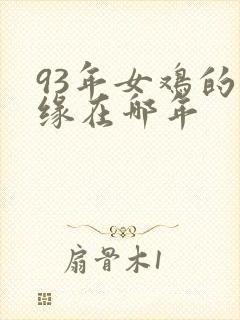 93年女鸡的
缘在哪年
扇骨木1